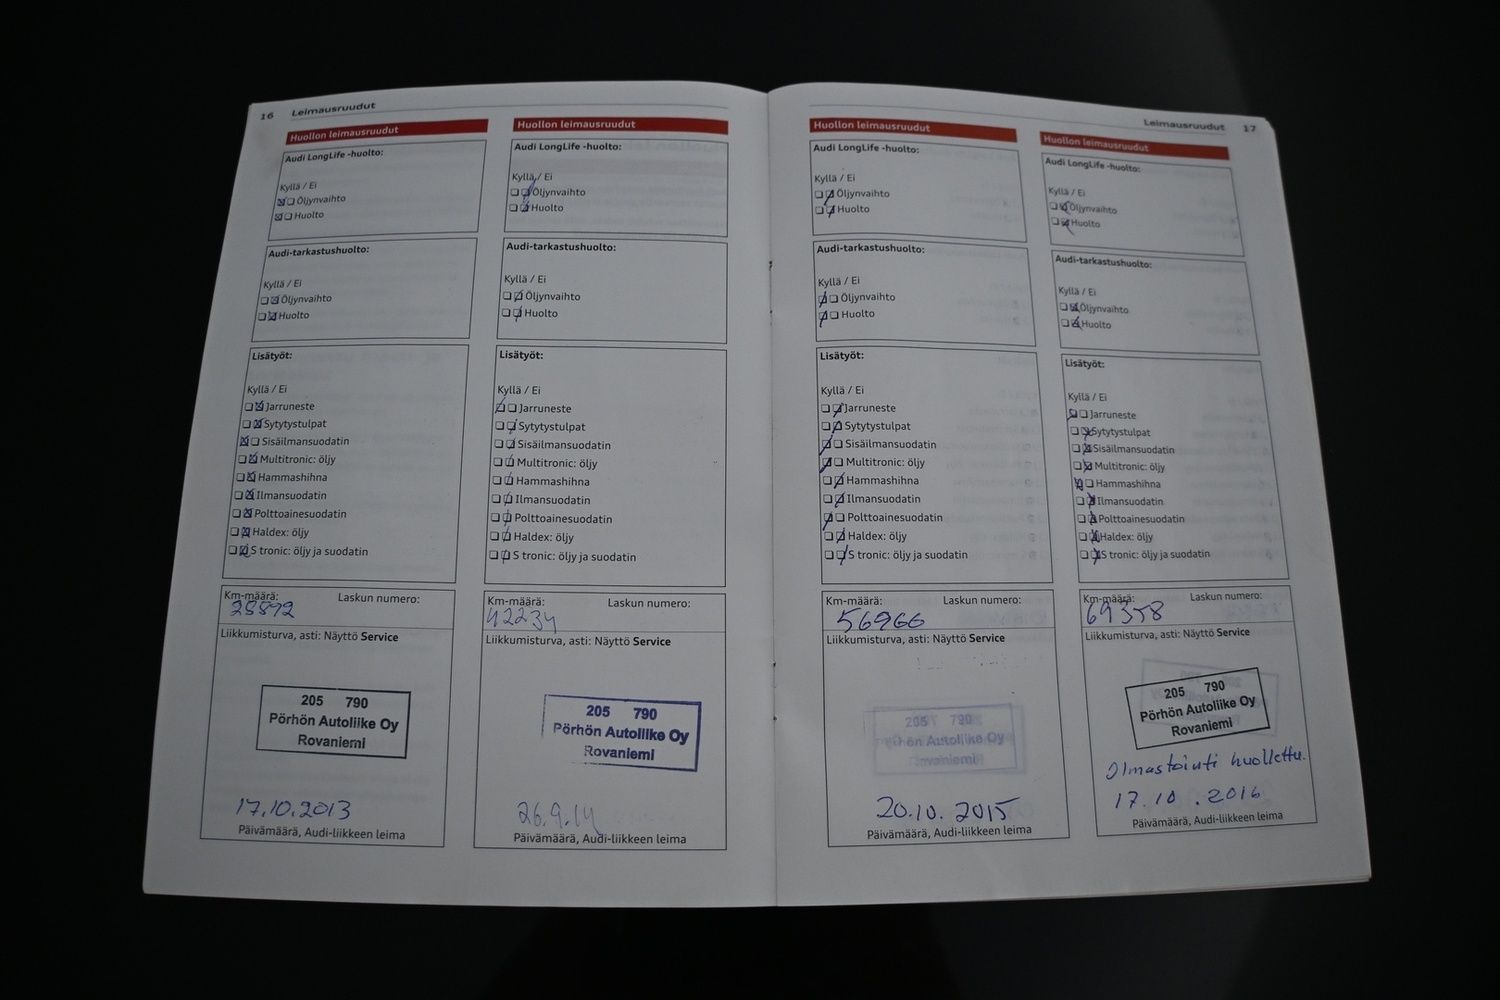 16 Leimausruudut
Huollon leimausruudut
Audi LongLife -huolto:
Kyllä / Ei
Öljynvaihto
Huolto
Audi-tarkastushuolto:
Kyllä / Ei
Öljynvaihto
Huolto
Lisätyöt:
Kyllä / Ei
Jarruneste
Sytytystulpat
Sisäilmansuodatin
Multitronic: öljy
Hammashihna
Ilmansuodatin
Polttoainesuodatin
Haldex: öljy
S tronic: öljy ja suodatin
Km-määrä: Laskun numero:
28892
Liikkumisturva, asti: Näyttö Service
205 790
Pörhön Autoliike Oy
Rovaniemi
17.10.2013
Päivämäärä, Audi-liikkeen leima
Huollon leimausruudut
Audi LongLife -huolto:
Kyllä / Ei
Öljynvaihto
Huolto
Audi-tarkastushuolto:
Kyllä / Ei
Öljynvaihto
Huolto
Lisätyöt:
Kyllä / Ei
Jarruneste
Sytytystulpat
Sisäilmansuodatin
Multitronic: öljy
Hammashihna
Ilmansuodatin
Polttoainesuodatin
Haldex: öljy
S tronic: öljy ja suodatin
Km-määrä: Laskun numero:
42234
Liikkumisturva, asti: Näyttö Service
205 790
Pörhön Autoliike Oy
Rovaniemi
26.9.14
Päivämäärä, Audi-liikkeen leima
Leimausruudut 17
Huollon leimausruudut
Audi LongLife -huolto:
Kyllä / Ei
Öljynvaihto
Huolto
Audi-tarkastushuolto:
Kyllä / Ei
Öljynvaihto
Huolto
Lisätyöt:
Kyllä / Ei
Jarruneste
Sytytystulpat
Sisäilmansuodatin
Multitronic: öljy
Hammashihna
Ilmansuodatin
Polttoainesuodatin
Haldex: öljy
S tronic: öljy ja suodatin
Km-määrä: Laskun numero:
56966
Liikkumisturva, asti: Näyttö Service
205 790
Pörhön Autoliike Oy
Rovaniemi
20.10.2015
Päivämäärä, Audi-liikkeen leima
Huollon leimausruudut
Audi LongLife -huolto:
Kyllä / Ei
Öljynvaihto
Huolto
Audi-tarkastushuolto:
Kyllä / Ei
Öljynvaihto
Huolto
Lisätyöt:
Kyllä / Ei
Jarruneste
Sytytystulpat
Sisäilmansuodatin
Multitronic: öljy
Hammashihna
Ilmansuodatin
Polttoainesuodatin
Haldex: öljy
S tronic: öljy ja suodatin
Km-määrä: Laskun numero:
69358
Liikkumisturva, asti: Näyttö Service
205 790
Pörhön Autoliike Oy
Rovaniemi
Ilmastointi huollettu.
17.10.2016
Päivämäärä, Audi-liikkeen leima